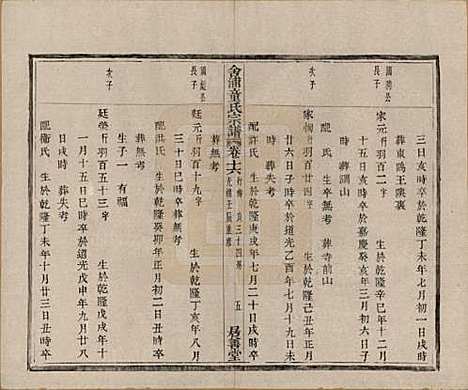 三日亥時卒於乾隆丁未年七月初一日戌時
葬東鷂王裏
國鴻公
長子
家元 行羽百十八字 生於乾隆辛巳年十二月
十五日寅時卒於嘉慶癸亥年三月六日子
時 葬調山
配 氏 生卒無考 葬寺前山
次子
家 行羽百廿四字 生於乾隆己丑年正月
廿六日子時卒於道光乙酉年七月十九日未
時 葬失考
配許氏 生於乾隆庚戌年七月二十日戌時卒
會浦童氏宗譜 卷十六 行傳 三十四
光緒壬辰重修
五 務善堂
三十日己時卒 葬無考
配洪氏 生於乾隆癸卯年正月初二日戌時卒
葬無考
國 公
長子
廷元 行羽百十九字 生於乾隆丁亥年八月
次子
廷榮 行羽百五十三字 生於乾隆丁未年十
一月十五日己時卒於道光戊申年九月廿八
日戌時 葬失考
生子一 有福
配衛氏 生於乾隆丁未年十月廿三日丑時卒